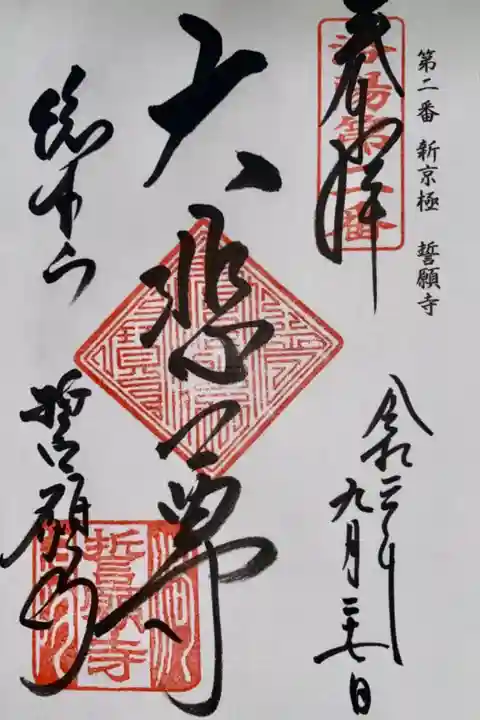 第二番 新京極 誓願寺
奉拝
洛陽第二番
令和二年
九月二十七日
大悲尊
総本山 誓願寺
誓願寺